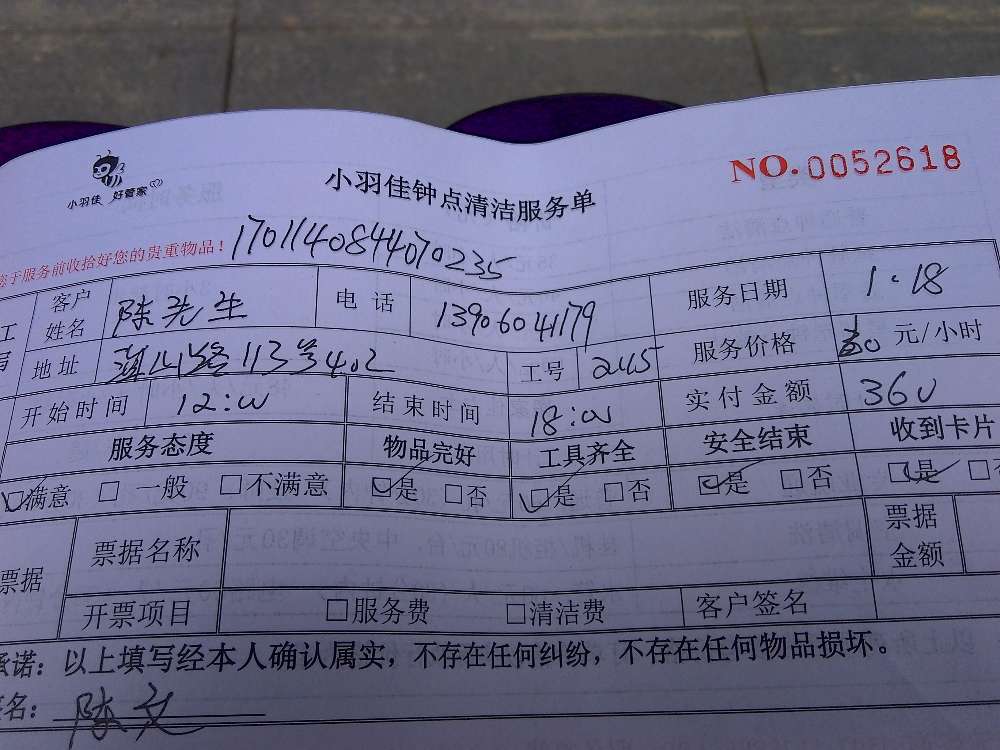 小羽佳 好管家
NO.0052618
小羽佳钟点清洁服务单
您于服务前收拾好您的贵重物品！ 17011408444070235
客户姓名 陈先生 电话 13906041179 服务日期 1·18
地址 山路113号402 工号 245 服务价格 元/小时
开始时间 12:00 结束时间 18:00 实付金额 360
服务态度 物品完好 工具齐全 安全结束 收到卡片
☑满意 □一般 □不满意 ☑是 □否 ☑是 □否 ☑是 □否 ☑是 □
票据 票据名称 票据金额
开票项目 □服务费 □清洁费 客户签名
承诺：以上填写经本人确认属实，不存在任何纠纷，不存在任何物品损坏。
签名：陈